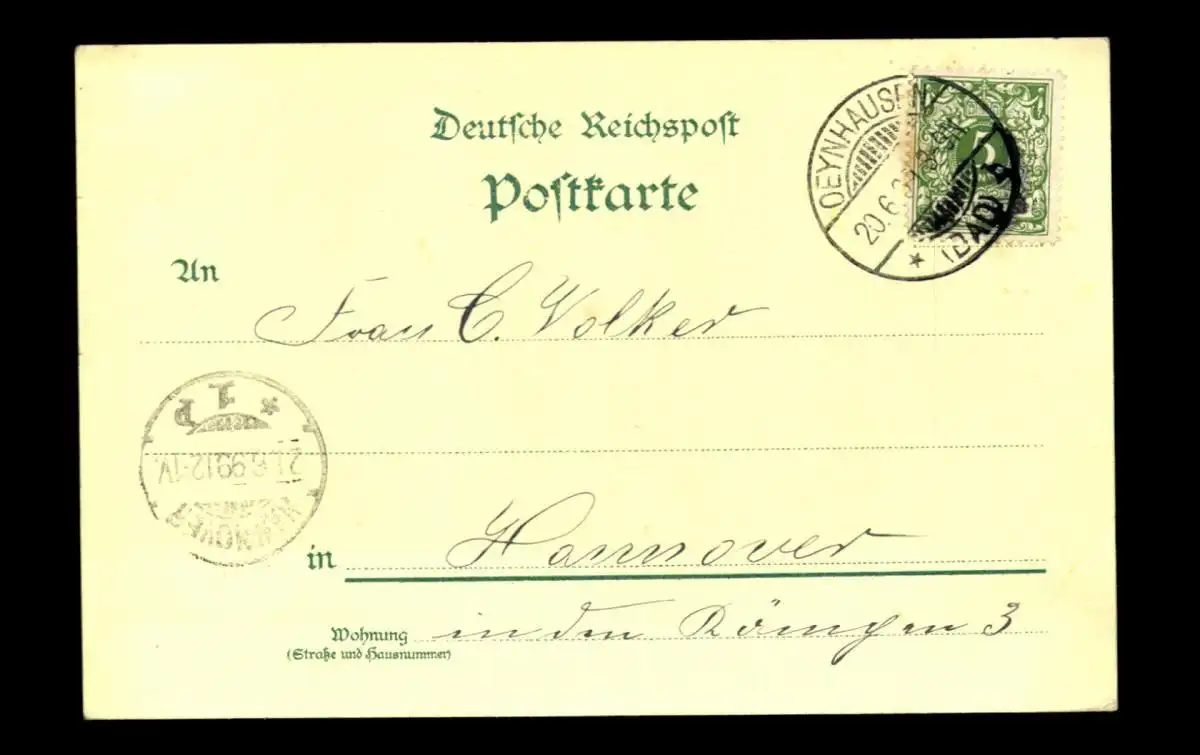 Deutsche Reichspost
Postkarte
5
OEYNHAUSEN
20.6.99. 8-9N.
* (BAD) *
An
Frau C. Volker
* 1 P
21.6.99.12-1V.
HANNOVER
in Hannover
Wohnung in den 3
(Straße und Hausnummer)